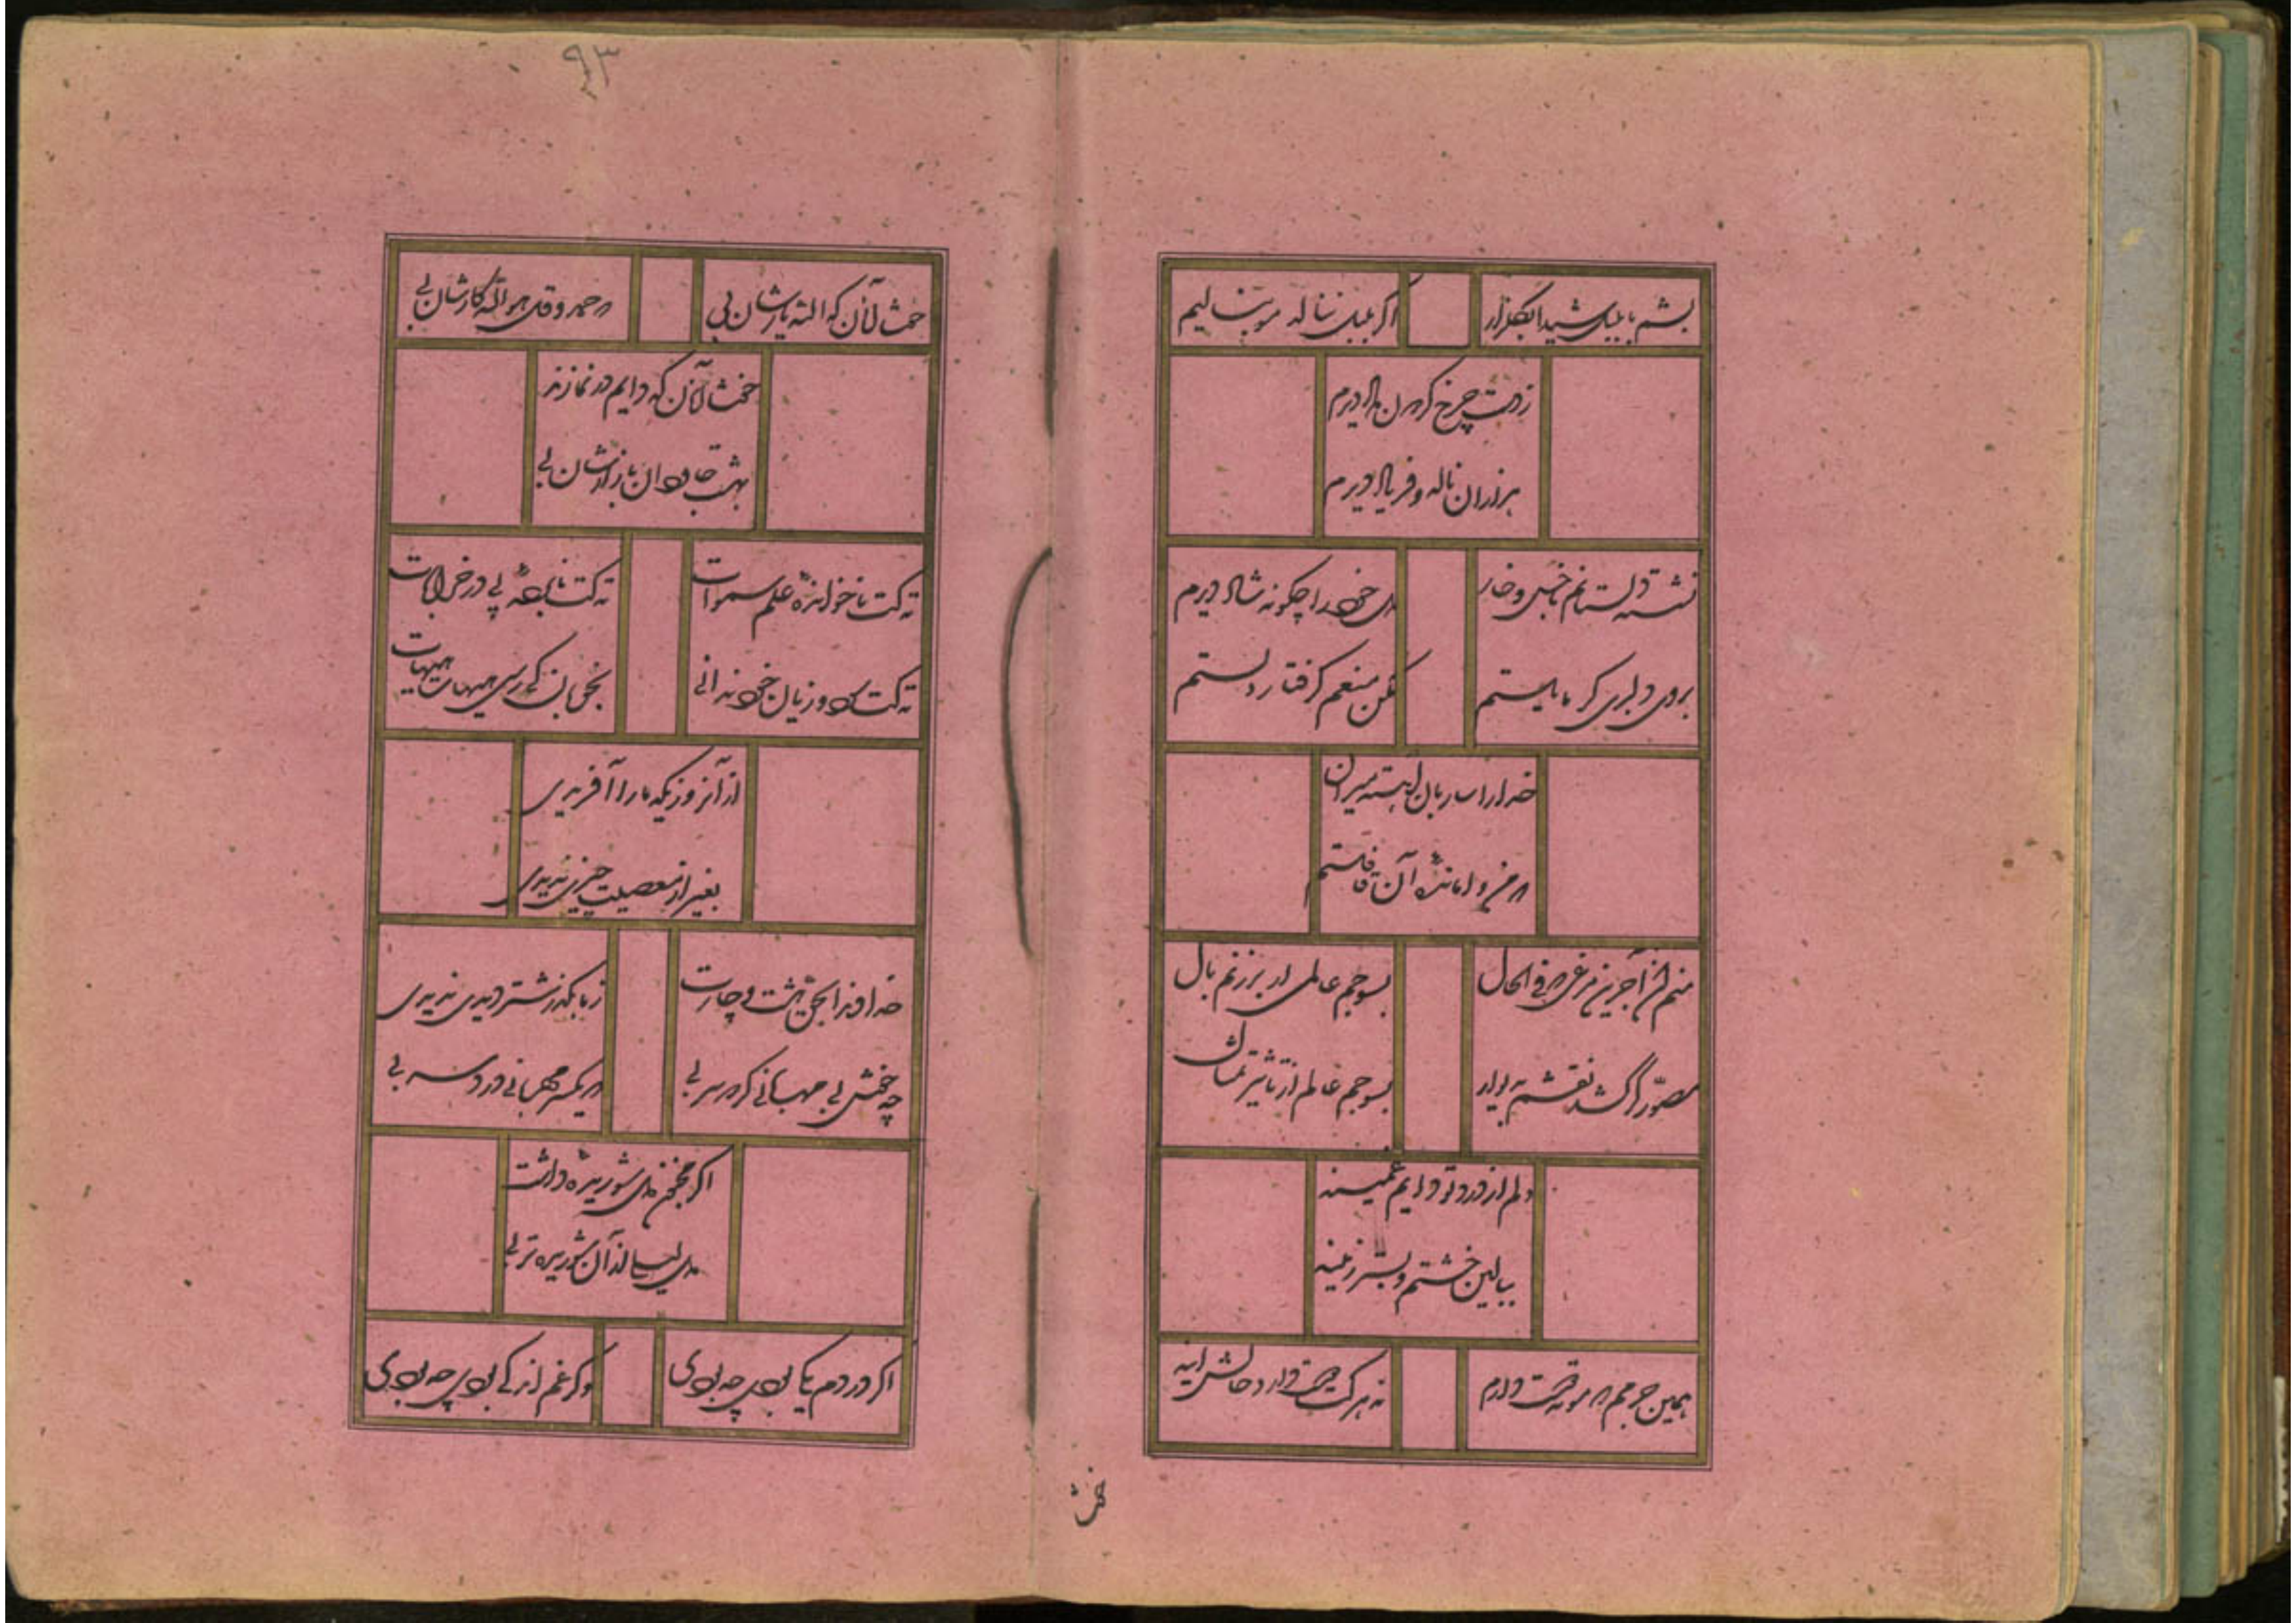 بشم با بلبل شیدا بگلزار
اگر بلبل نناله مو بنالیم
ز دست چرخ گردن داد دیرم
هزاران ناله و فریاد دیرم
نشسته دلستانم با خس و خار
دل خود را چگونه شاد دیرم
بروی دلبری گر مایلستم
مکن منعم گرفتار دلستم
خدا را ساربان آهسته میران
که من وامانده آن قافلستم
منم آن آذرین مرغی که فی الحال
بسوجم عالمی ار برزنم بال
مصور گر کشد نقشم بدیوار
بسوجم عالم از تاثیر تمثال
دلم از درد تو دایم غمینه
ببالین خشتم و بستر زمینه
همین جرمم که مو ته دوست دارم
نه هر کت دوست دارد حالش اینه
خوشا
۹۳
خوشا آنان که الله یارشان بی
که حمد و قل هو الله کارشان بی
خوشا آنان که دایم در نمازند
بهشت جاودان بازارشان بی
ته کت ناخوانده علم سموات
ته کت نابرده پی در خرابات
ته کت سود و زیان خود ندانی
بجویان کی رسی هیهات هیهات
از آنروزیکه ما را آفریدی
بغیر از معصیت چیزی ندیدی
خداوندا بحق هشت و چارت
ز ما بگذر شتر دیدی ندیدی
چه خوش بی مهربانی کز دو سر بی
که یکسر مهربانی درد سر بی
اگر مجنون دل شوریده داشت
دل لیلی از آن شوریده تر بی
اگر دردم یکی بودی چه بودی
وگر غم اندکی بودی چه بودی